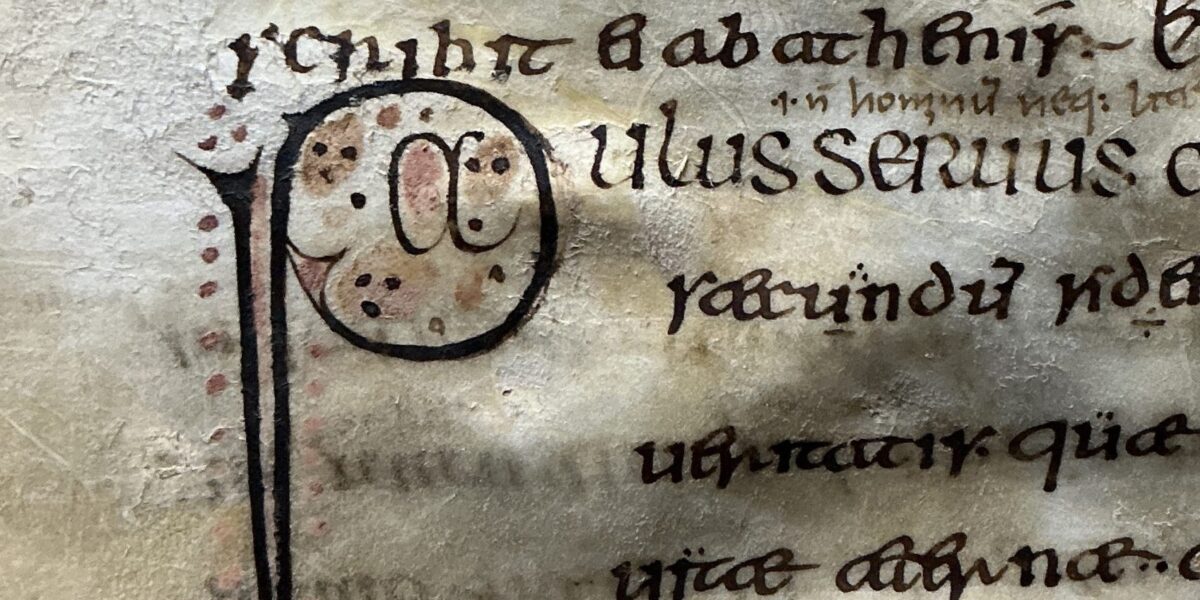 scribit ei ab athenis:~
.i. n̄ hominū neq:
Paulus seruus
secundū fide
ueritatis. quae
uitae aeternae..